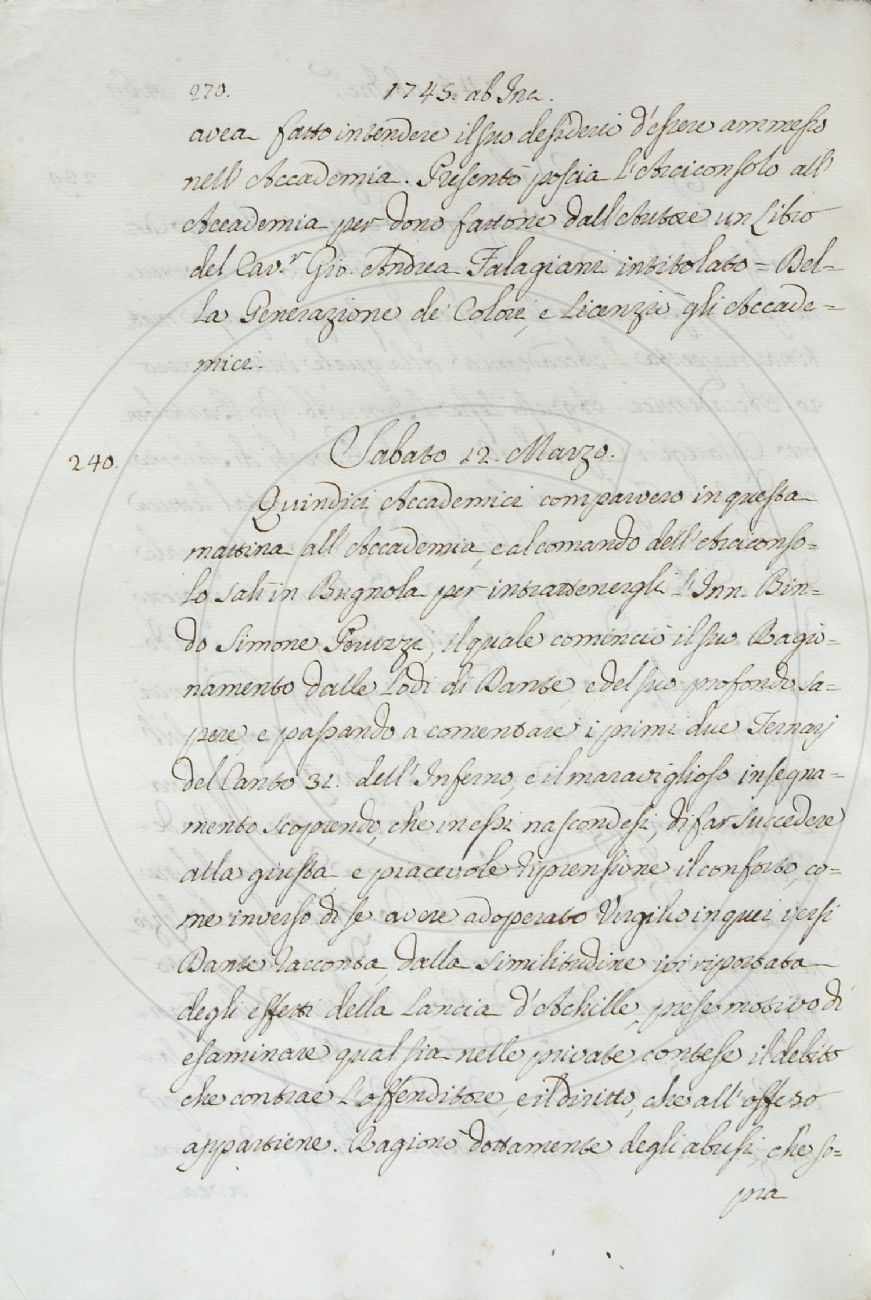 270. 1745. ab Inc.
avea fatto intendere il suo desiderio d'essere ammesso
nell'Accademia. Presentò poscia l'Arciconsolo all'
Accademia per dono fattone dall'Autore un Libro
del Cav.r Gio. Andrea Falagiani intitolato = Del=
la Generazione de' Colori, e licenziò gli Accade=
mici.
240. Sabato 12. Marzo.
Quindici Accademici comparvero in questa
mattina all'Accademia, e al comando dell'Arciconso=
lo salì in Bugnola per intrattenergli l'Inn. Bin=
do Simone Peruzzi, il quale cominciò il suo Ragio=
namento dalle Lodi di Dante, e del suo profondo sa=
pere, e passando a comentare i primi due Ternarj
del Canto 31. dell'Inferno, e il maraviglioso insegna=
mento scoprendo, che in essi nascondesi, di far succedere
alla giusta, e piacevole riprensione il conforto, co=
me inverso di se avere adoperato Virgilio in quei versi
Dante racconta, dalla similitudine ivi riportata
degli effetti della Lancia d'Achille, prese motivo di
esaminare qual sia nelle private contese il debito
che contrae l'offenditore, e il diritto, che all'offeso
appartiene. Ragionò dottamente degli abusi, che so=
pra